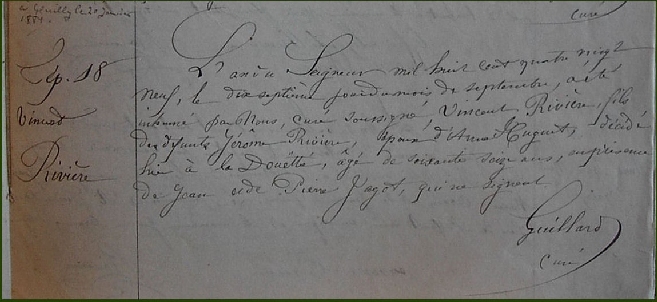 à Genilly le 20 Janvier
1881.
curé
Sép. 18
Vincent
Rivière
L'an du Seigneur mil huit cent quatre vingt
neuf, le dix septième jour du mois de septembre, a été
inhumé par Nous, curé soussigné, Vincent Rivière, fils
de défunts Jérôme Rivière, époux d'Anne Huguet, décédé
hier à la Douëtté, âgé de soixante seize ans, en présence
de Jean et de Pierre Jagot, qui ne signent
Guillard
curé